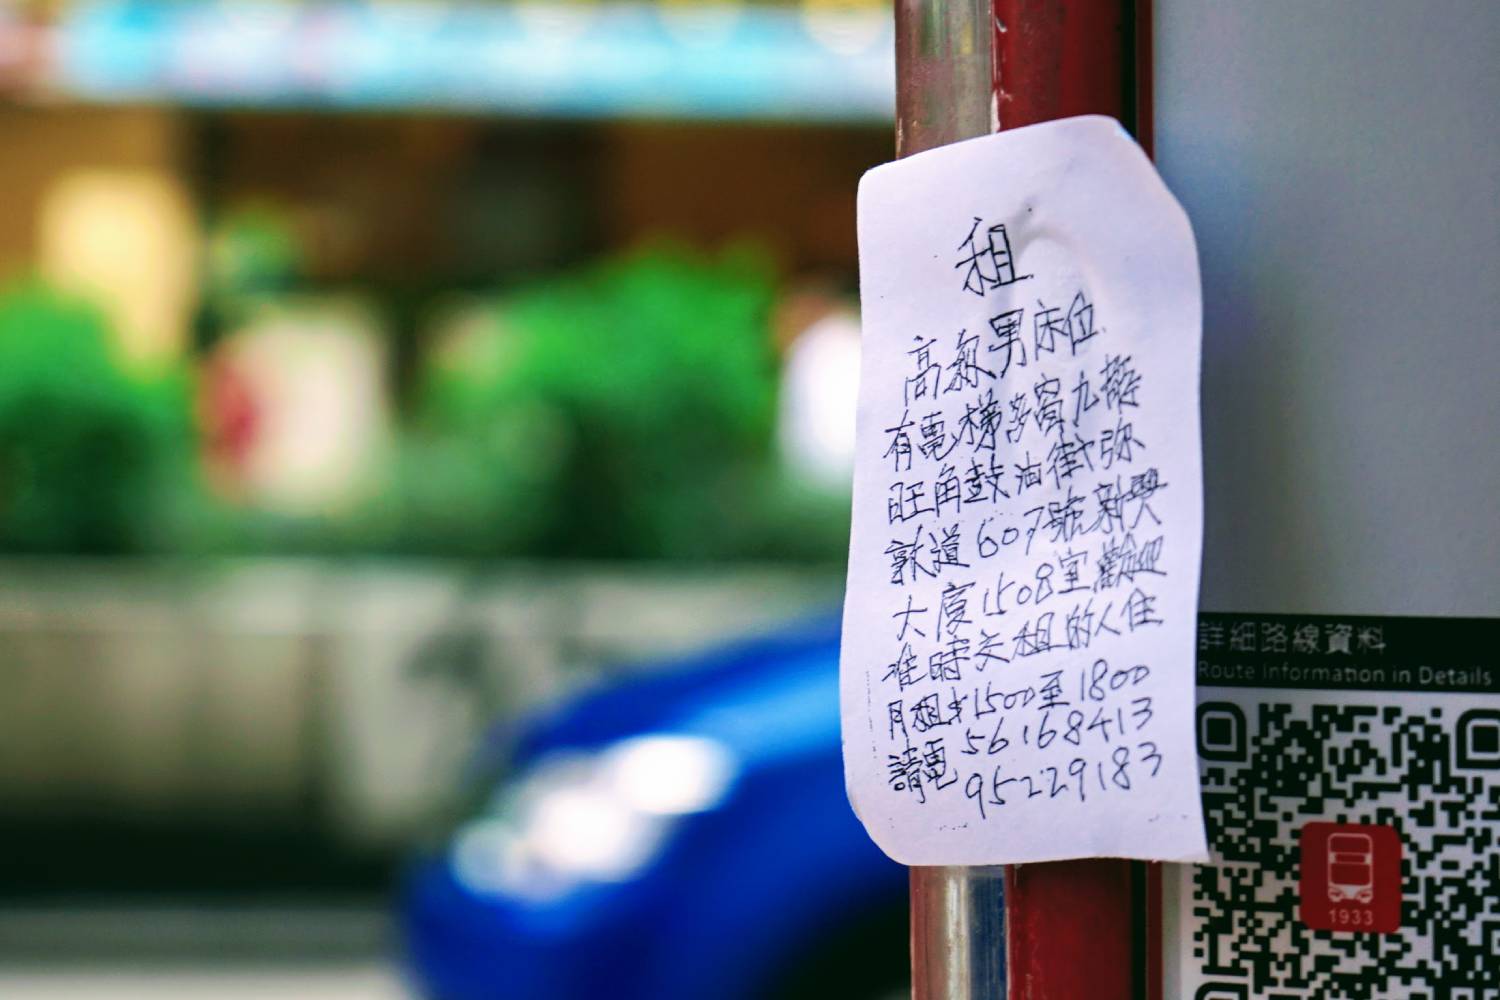 租
高級男床位.
有電梯多窗九
旺角鼓油街弥
敦道607號新興
大廈1508室歡迎
准時交租的人住
月租$1500至1800
請電 56168413
95229183
詳細路線資料
Route Information in Details
1933